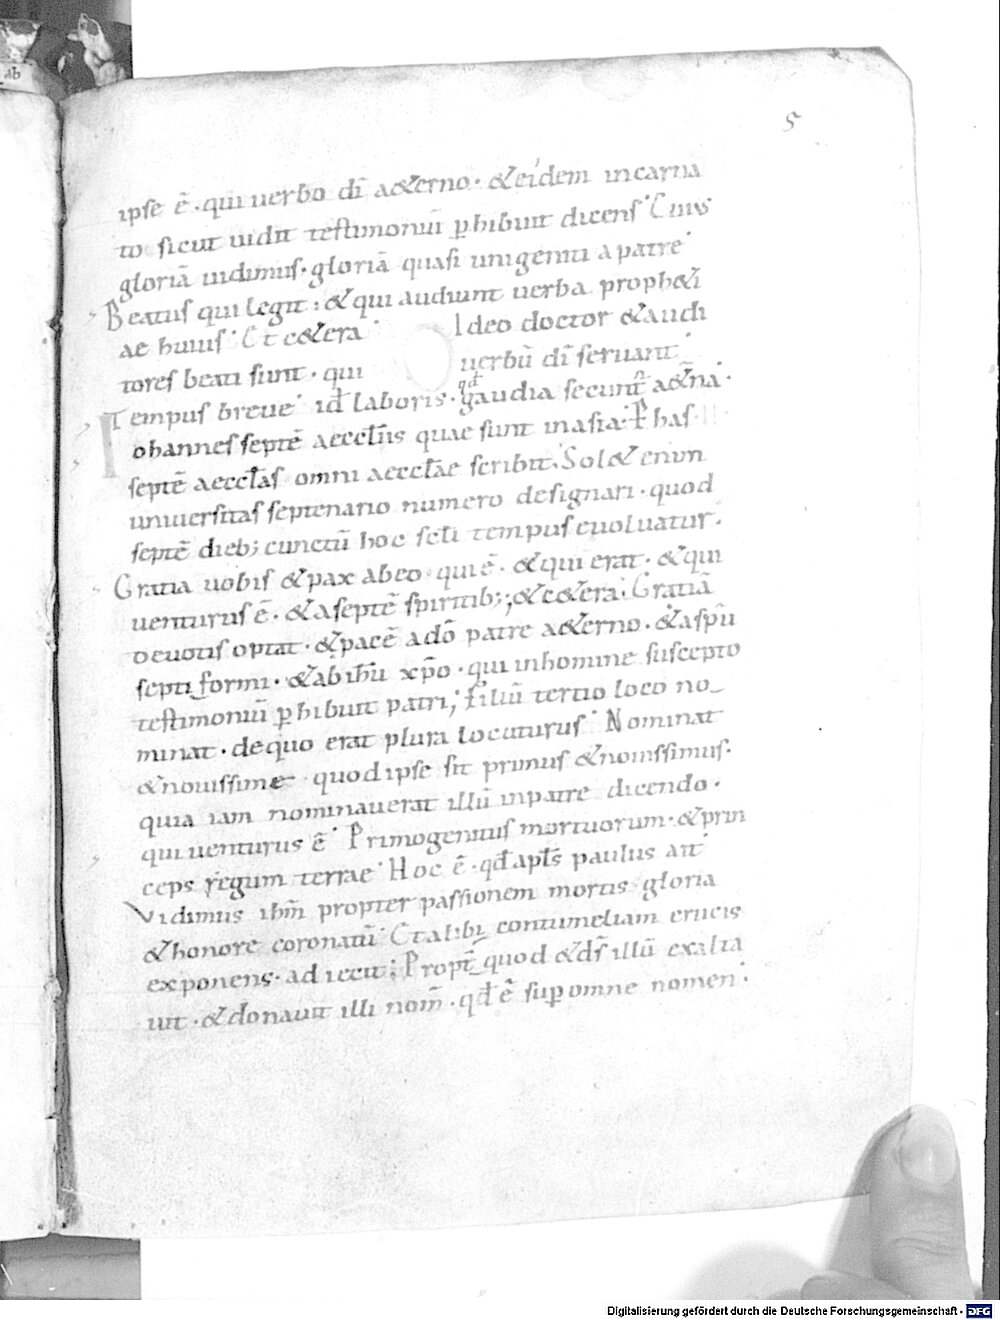 5
ipse ē · qui uerbo dī a&erno · & eidem incarna
to sicut uidit testimoniū phibuit dicens Cuius
gloriā uidimus · gloriā quasi unigeniti a patre
Beatus qui legit : & qui audiunt uerba proph&i
ae huius Et c&era Ideo doctor & audi
tores beati sunt · qui uerbū dī seruant
Tempus breue id laboris · qđ gaudia secunt a&na ·
Iohannes septē aecclīis quae sunt in asia · P has
septē aecclas omni aecclae scribit · Sol& enim
uniuersitas septenario numero designari · quod
septē dieb; cunctū hoc scli tempus euoluatur ·
Gratia uobis & pax ab eo qui ē · & qui erat · & qui
uenturus ē · & a septē spiritib; ; & c&era Gratiā
deuotis optat · & pacē a dō patre a&erno · & a spū
septiformi · & ab ihū xpo · qui in homine suscepto
testimoniū phibuit patri ; filiū tertio loco no
minat · de quo erat plura locuturus Nominat
& nouissime quod ipse sit primus & nouissimus ·
quia iam nominauerat illū in patre dicendo ·
qui uenturus ē Primogenitus mortuorum · & prin
ceps regum terrae Hoc ē · qđ apls paulus ait
Vidimus ihm propter passionem mortis gloria
& honore coronatū Et alibi contumeliam crucis
exponens · adiecit ; Propt quod & ds illū exalta
uit · & donauit illi nom · qđ ē sup omne nomen
Digitalisierung gefördert durch die Deutsche Forschungsgemeinschaft - DFG